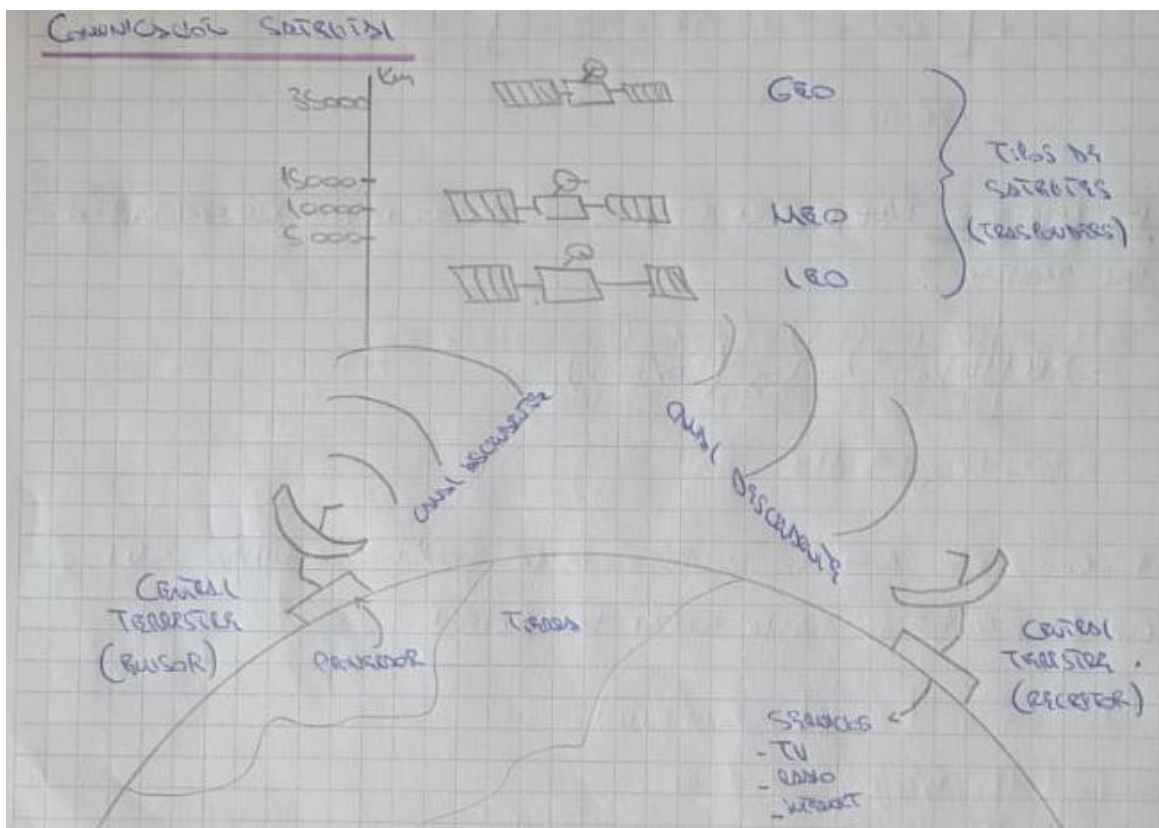 COMUNICACIÓN SATELITAL
Km
35000
15000
10000
5000
GEO
MEO
LEO
TIPOS DE
SATELITES
CANAL ASCENDENTE
CANAL DESCENDENTE
CENTRAL
TERRESTRE
(EMISOR)
PROVEEDOR
TIERRA
CENTRAL
TERRESTRE
(RECEPTOR)
SERVICIOS
- TV
- RADIO
- INTERNET